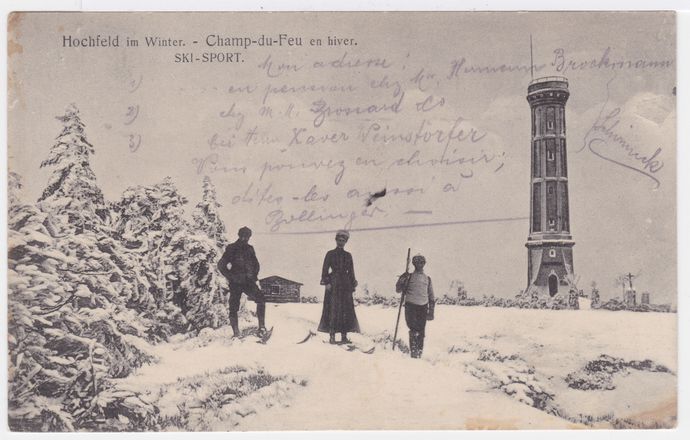 Hochfeld im Winter. - Champ-du-Feu en hiver.
SKI-SPORT.
Mon adresse:
1) en pension chez Mr. Hermann Brockmann
2) chez M.M. Brossard & Co
3) bei Herrn Xaver
Vous pouvez en choisir;
dites-les aussi à
Bollinger —